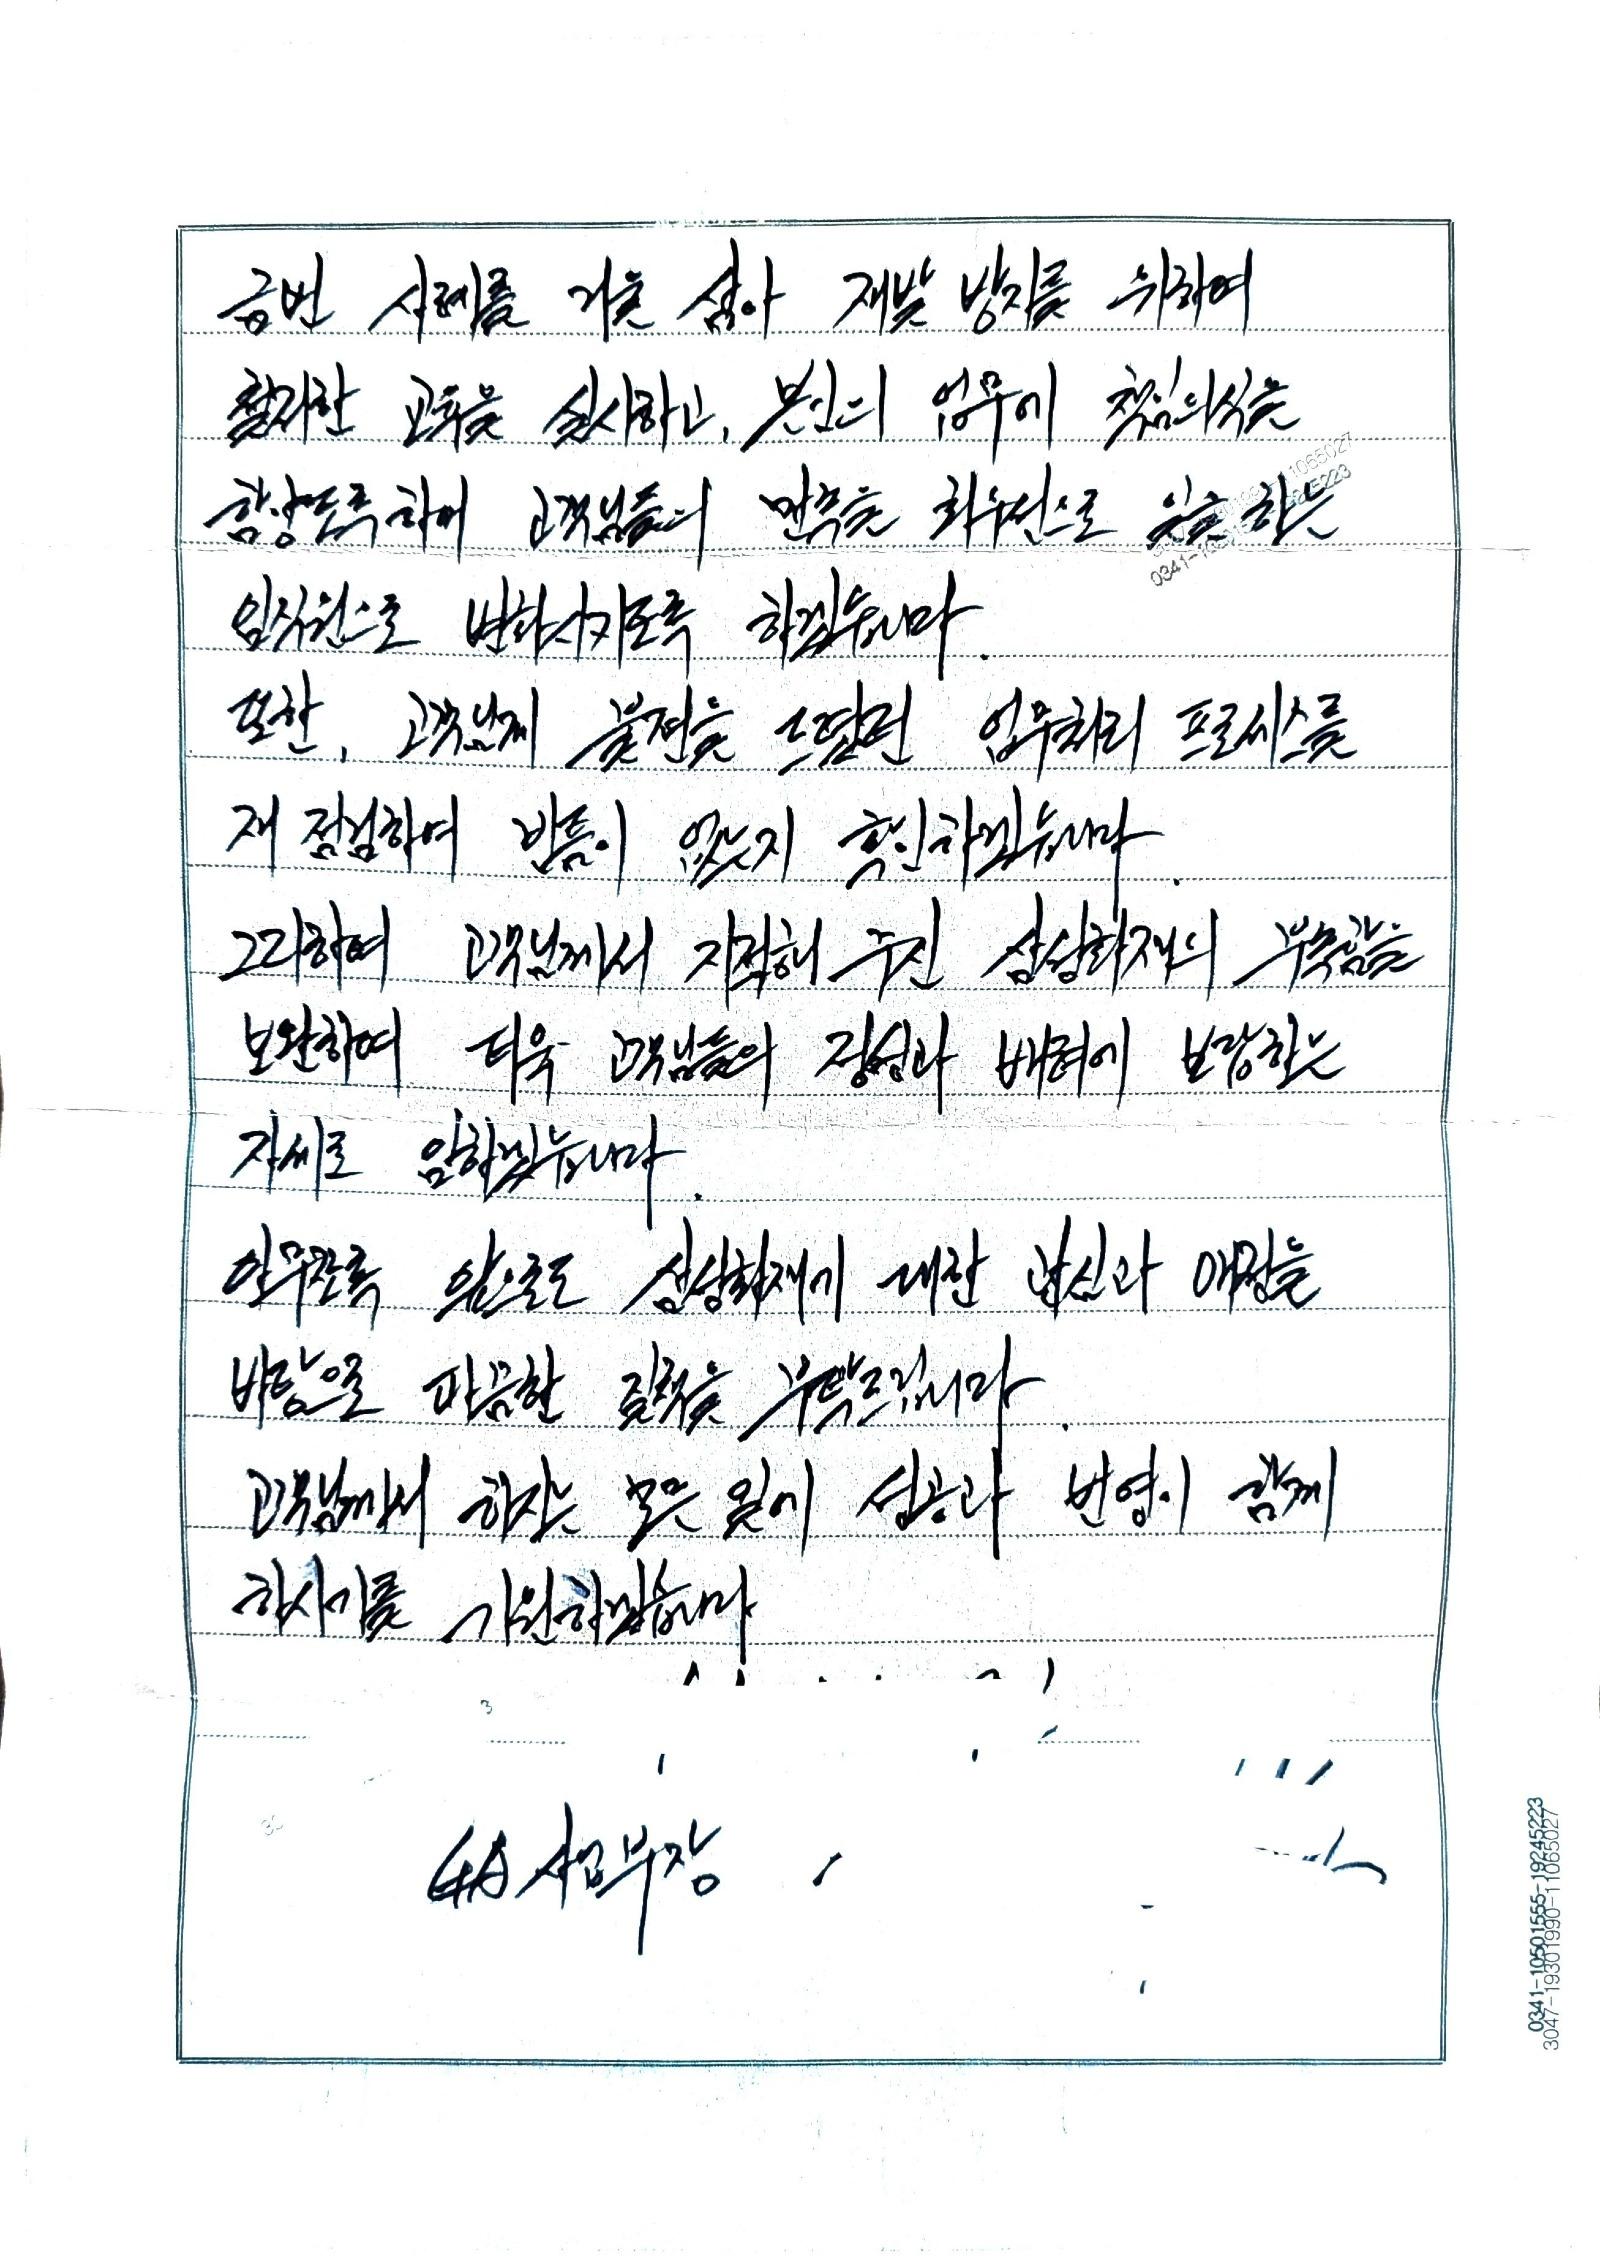 금번 사례를 거울 삼아 재발 방지를 위하여
철저한 교육을 실시하고, 본인의 업무에 책임의식을
함양토록하여 고객님들의 만족을 최우선으로 하는
임직원으로 변화시키도록 하겠습니다.
또한, 고객님께 불편을 드렸던 업무처리 프로세스를
재 점검하여 빈틈이 없는지 확인하겠습니다.
그리하여 고객님께서 지적해 주신 삼성화재의 부족함을
보완하여 더욱 고객님들의 정성과 배려에 보답하는
자세로 임하겠습니다.
아무쪼록 앞으로도 삼성화재에 대한 관심과 애정을
바탕으로 따끔한 질책을 부탁드립니다.
고객님께서 하시는 모든 일에 성공과 번영이 함께
하시기를 기원하겠습니다
GA사업부장
0341-10501555-19245223
3047-19301990-11065027